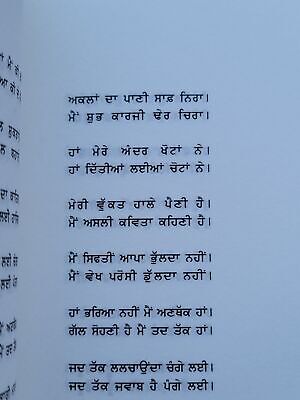 ਅਕਲਾਂ ਦਾ ਪਾਣੀ ਸਾਫ਼ ਨਿਰਾ।
ਮੈਂ ਸ਼ੁਭ ਕਾਰਜੀ ਢੇਰ ਚਿਰਾ।
ਹਾਂ ਮੇਰੇ ਅੰਦਰ ਖੋਟਾਂ ਨੇ।
ਹਾਂ ਦਿੱਤੀਆਂ ਲਈਆਂ ਚੋਟਾਂ ਨੇ।
ਮੇਰੀ ਵੁੱਕਤ ਹਾਲੇ ਪੈਣੀ ਹੈ।
ਮੈਂ ਅਸਲੀ ਕਵਿਤਾ ਕਹਿਣੀ ਹੈ।
ਮੈਂ ਸਿਫਤੀਂ ਆਪਾ ਭੁੱਲਦਾ ਨਹੀਂ।
ਮੈਂ ਵੇਖ ਪਰੋਸੀ ਡੁੱਲਦਾ ਨਹੀਂ।
ਹਾਂ ਭਰਿਆ ਨਹੀਂ ਮੈਂ ਅਣਥੱਕ ਹਾਂ।
ਗੱਲ ਸੋਹਣੀ ਹੈ ਮੈਂ ਤਦ ਤੱਕ ਹਾਂ।
ਜਦ ਤੱਕ ਲਲਚਾਉਂਦਾ ਚੰਗੇ ਲਈ।
ਜਦ ਤੱਕ ਜਵਾਬ ਹੈ ਪੰਗੇ ਲਈ।